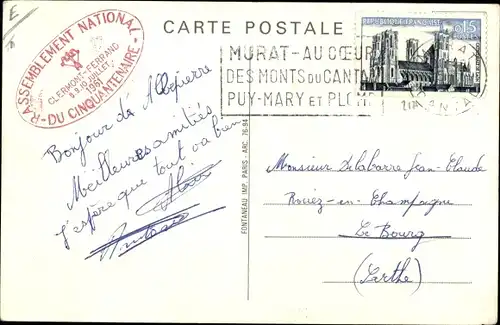 E
CARTE POSTALE
RASSEMBLEMENT NATIONAL
CLERMONT-FERRAND
8.9. JUILLET
1961
DU CINQUANTENAIRE
MURAT-AU CŒUR
DES MONTS DU CANTAL
PUY-MARY ET PLOMB
REPUBLIQUE FRANÇAISE
0,15
POSTES
CANTAL
Bonjour de
Meilleures amitiés
J'espère que tout va bien
Alain
FONTANEAU IMP. PARIS. ARC. 76-94
Monsieur Delabarre Jean-Claude
Rouez-en-Champagne
Le Bourg
(Sarthe)